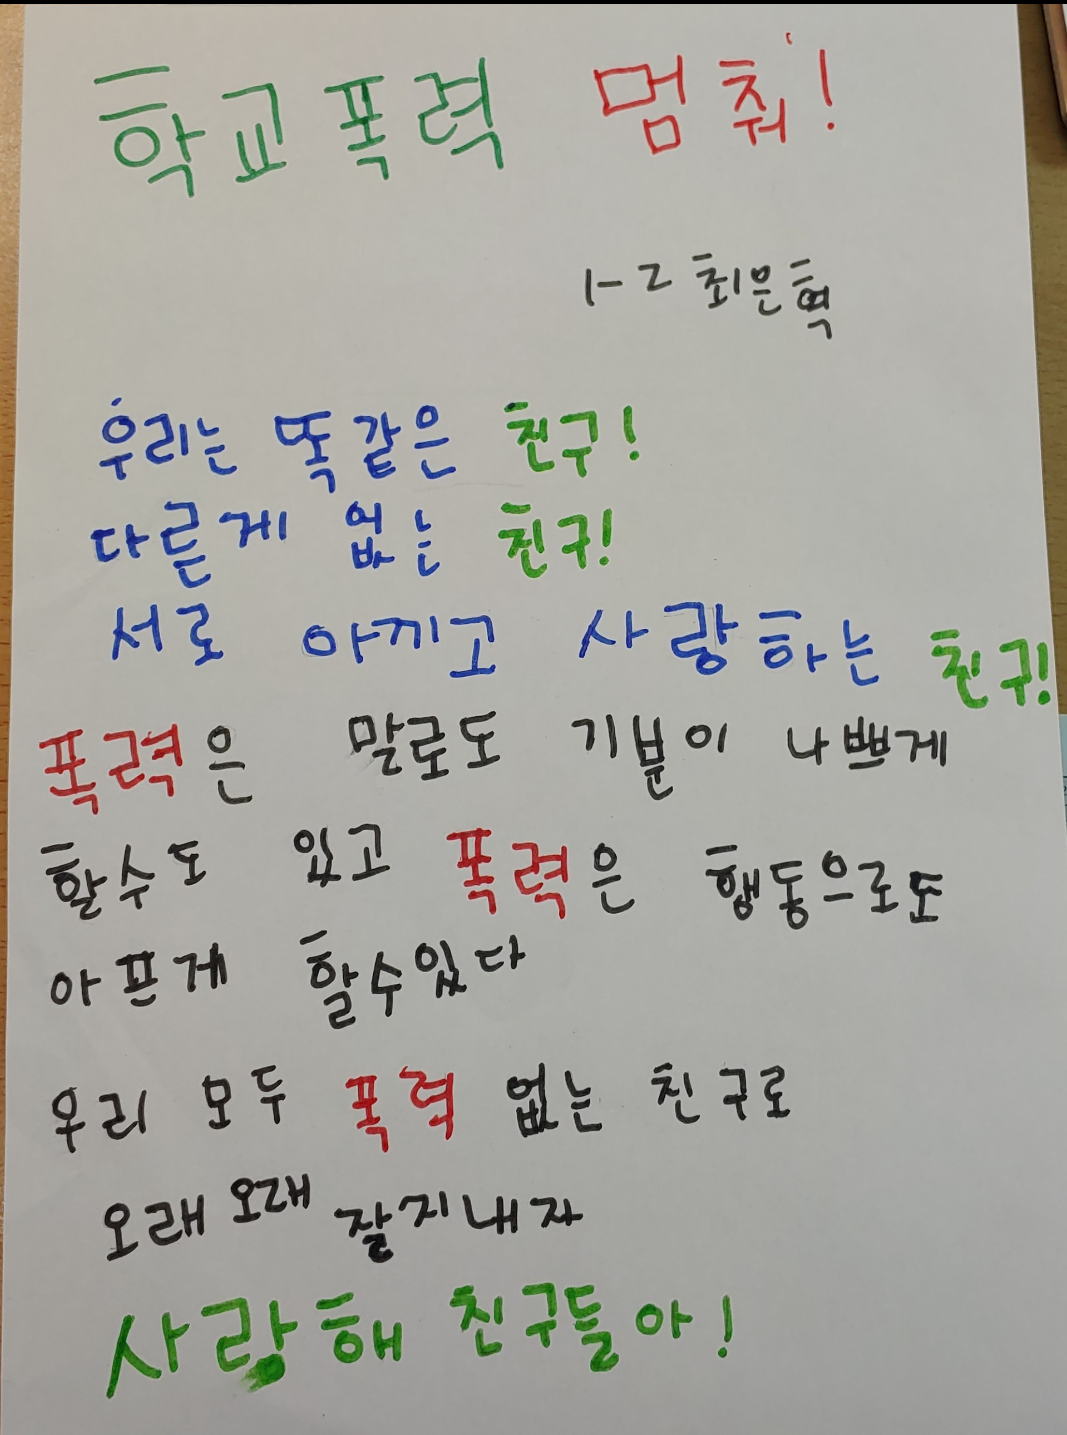 학교폭력 멈춰!
1-2 최은혁
우리는 똑같은 친구!
다른게 없는 친구!
서로 아끼고 사랑하는 친구!
폭력은 말로도 기분이 나쁘게
할수도 있고 폭력은 행동으로도
아프게 할수있다
우리 모두 폭력 없는 친구로
오래오래 잘지내자
사랑해 친구들아!